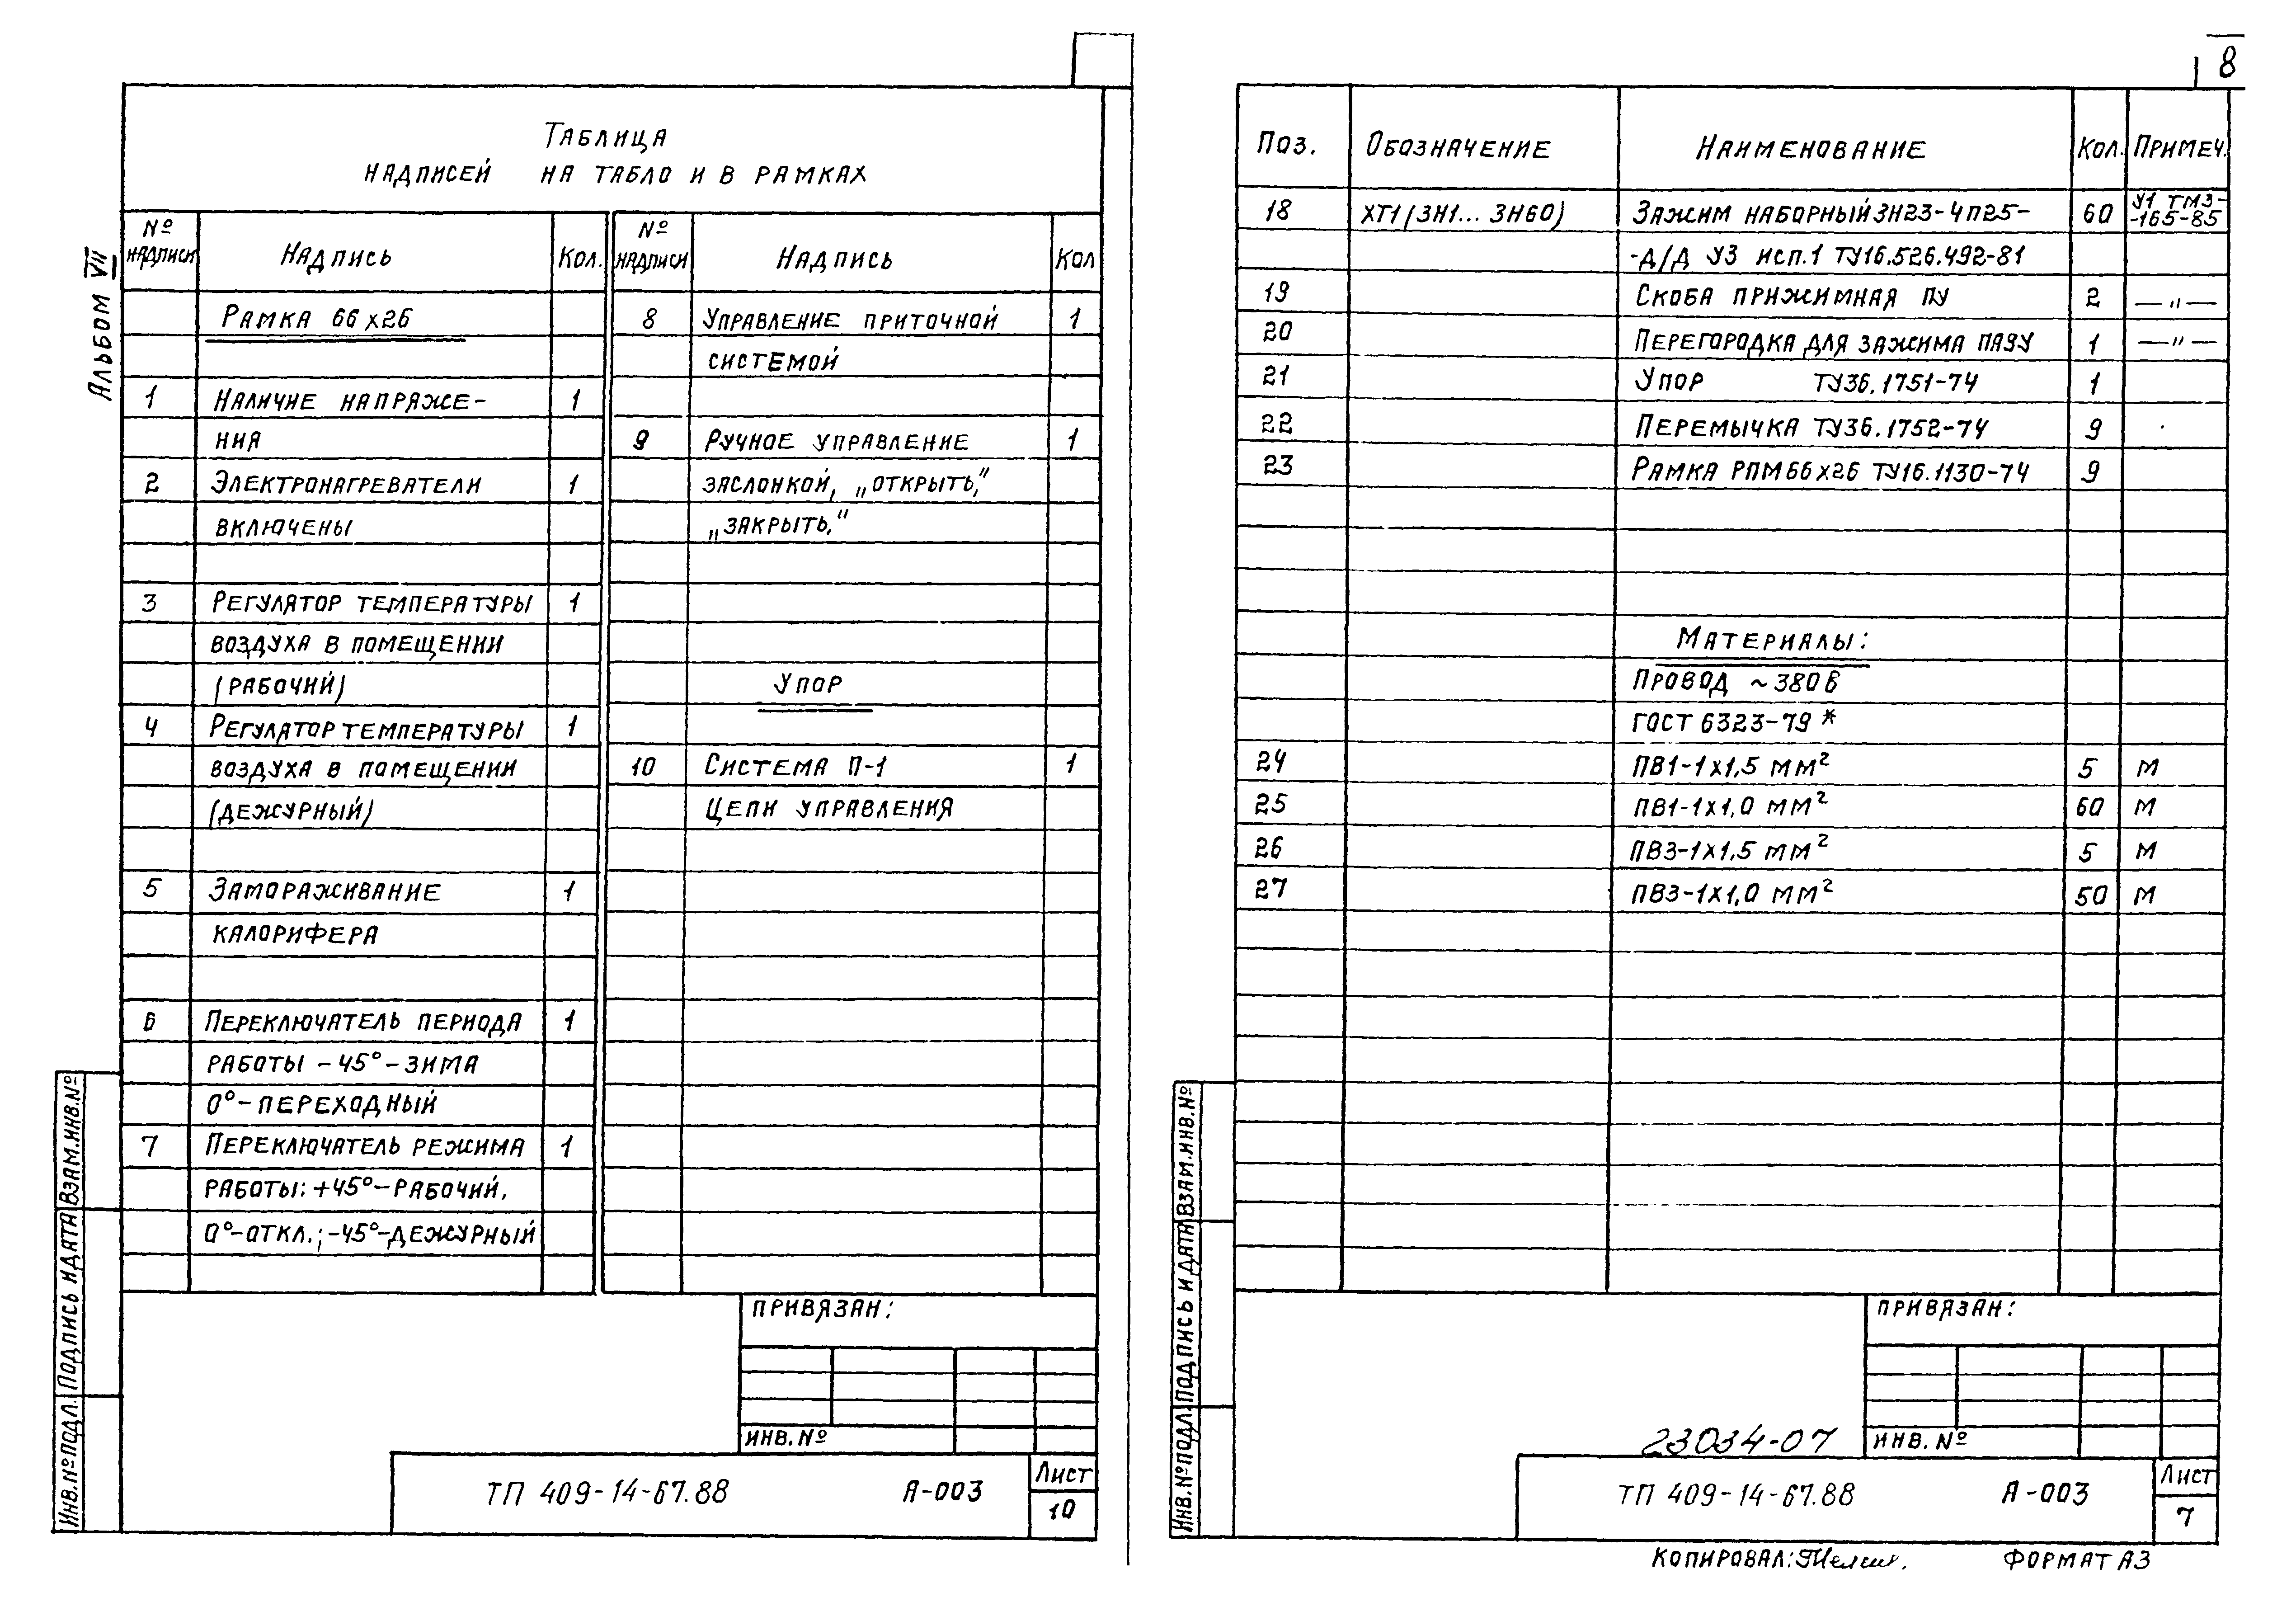 АЛЬБОМ VII
ТАБЛИЦА
НАДПИСЕЙ НА ТАБЛО И В РАМКАХ
№ НАДПИСИ НАДПИСЬ КОЛ.
РАМКА 66х26
1 НАЛИЧИЕ НАПРЯЖЕ- 1
НИЯ
2 ЭЛЕКТРОНАГРЕВАТЕЛИ 1
ВКЛЮЧЕНЫ
3 РЕГУЛЯТОР ТЕМПЕРАТУРЫ 1
ВОЗДУХА В ПОМЕЩЕНИИ
(РАБОЧИЙ)
4 РЕГУЛЯТОР ТЕМПЕРАТУРЫ 1
ВОЗДУХА В ПОМЕЩЕНИИ
(ДЕЖУРНЫЙ)
5 ЗАМОРАЖИВАНИЕ 1
КАЛОРИФЕРА
6 ПЕРЕКЛЮЧАТЕЛЬ ПЕРИОДА 1
РАБОТЫ -45°-ЗИМА
0°-ПЕРЕХОДНЫЙ
7 ПЕРЕКЛЮЧАТЕЛЬ РЕЖИМА 1
РАБОТЫ: +45°-РАБОЧИЙ,
0°-ОТКЛ.; -45°-ДЕЖУРНЫЙ
№ НАДПИСИ НАДПИСЬ КОЛ
8 УПРАВЛЕНИЕ ПРИТОЧНОЙ 1
СИСТЕМОЙ
9 РУЧНОЕ УПРАВЛЕНИЕ 1
ЗАСЛОНКОЙ, „ОТКРЫТЬ,"
„ЗАКРЫТЬ."
УПОР
10 СИСТЕМА П-1 1
ЦЕПИ УПРАВЛЕНИЯ
ПРИВЯЗАН:
ИНВ. №
ТП 409-14-67.88 А-003
ЛИСТ
10
ИНВ.№ПОДЛ. ПОДПИСЬ И ДАТА ВЗАМ.ИНВ.№
8
ПОЗ. ОБОЗНАЧЕНИЕ НАИМЕНОВАНИЕ КОЛ. ПРИМЕЧ.
18 ХТ1(ЗН1... ЗН60) ЗАЖИМ НАБОРНЫЙ ЗН23-4П25- 60 У1 ТМ3-
-165-85
-Д/Д У3 ИСП.1 ТУ16.526.492-81
19 СКОБА ПРИЖИМНАЯ ПУ 2 —"—
20 ПЕРЕГОРОДКА ДЛЯ ЗАЖИМА ПАЗУ 1 —"—
21 УПОР ТУ36.1751-74 1
22 ПЕРЕМЫЧКА ТУ36.1752-74 9
23 РАМКА РПМ66х26 ТУ16.1130-74 9
МАТЕРИАЛЫ:
ПРОВОД ~380В
ГОСТ 6323-79*
24 ПВ1-1х1,5 мм² 5 М
25 ПВ1-1х1,0 мм² 60 М
26 ПВ3-1х1,5 мм² 5 М
27 ПВ3-1х1,0 мм² 50 М
ПРИВЯЗАН:
23034-07
ИНВ. №
ТП 409-14-67.88 А-003
ЛИСТ
7
ИНВ.№ПОДЛ. ПОДПИСЬ И ДАТА ВЗАМ.ИНВ.№
КОПИРОВАЛ: ФОРМАТ А3